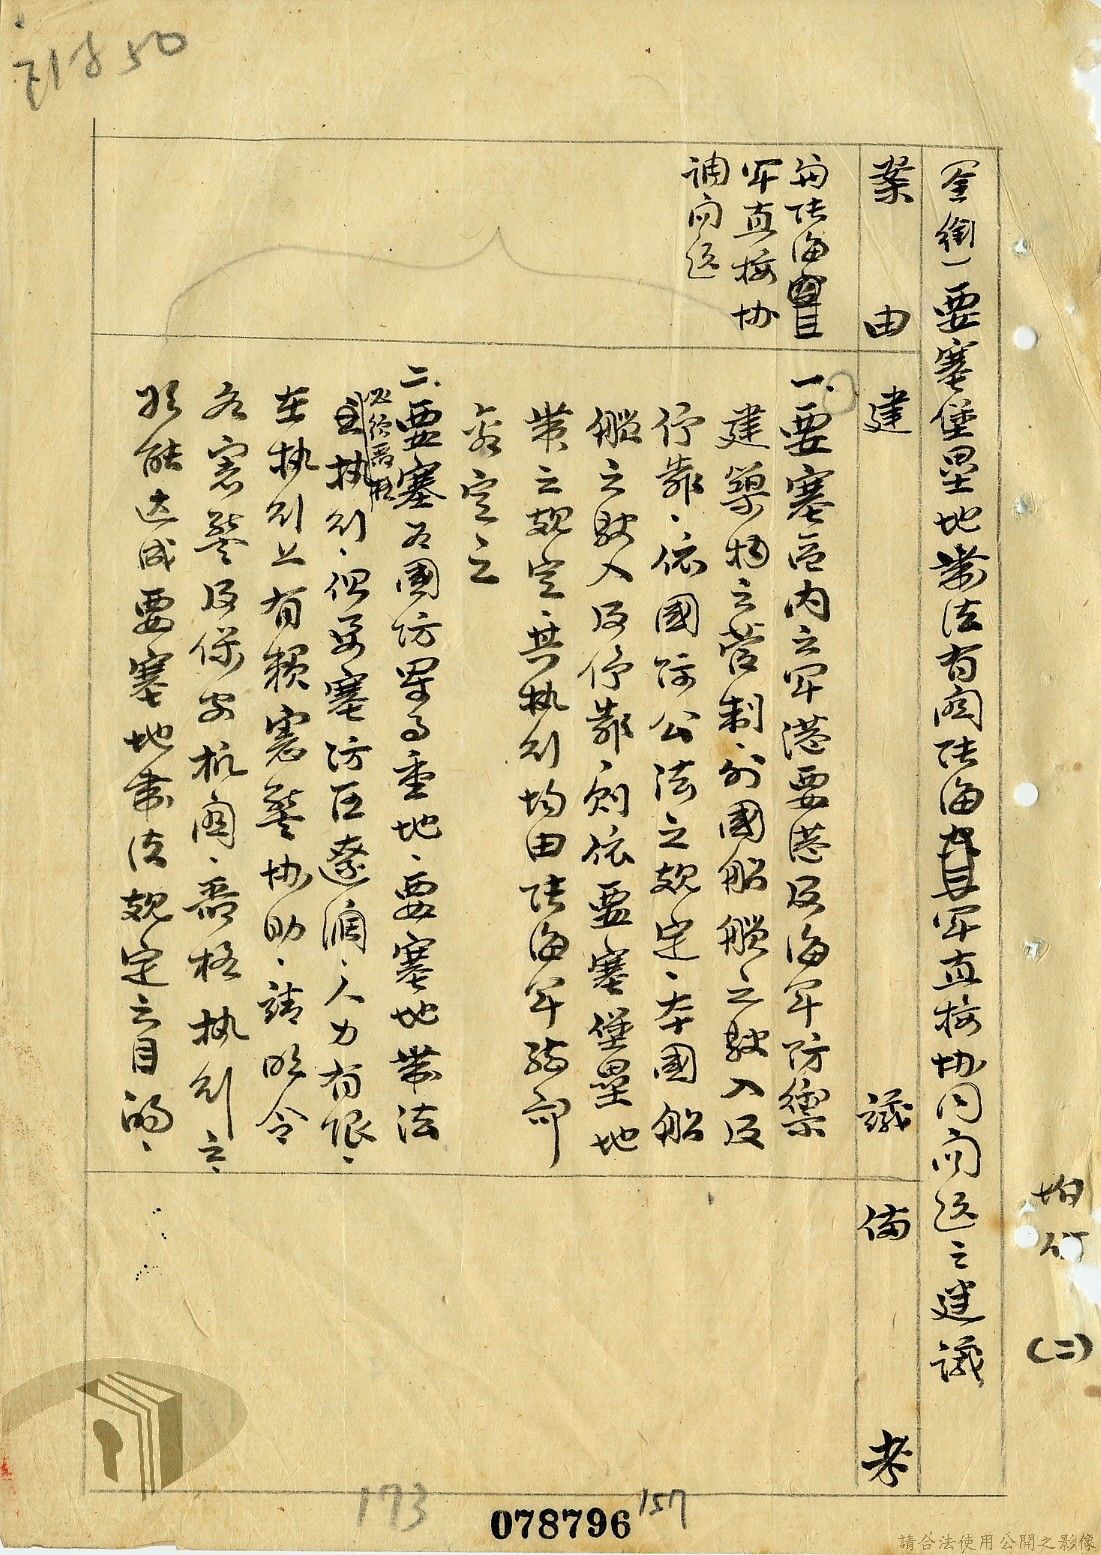 (全銜)要塞堡壘地帶法有關陸海軍直接協同問題之建議
案由
建議
備考
為陸海
軍直接協
調問題
一、要塞區內之軍港要港及海軍防禦
建築物之管制、外國船艦之駛入及
停靠、依國際公法之規定、本國船
艦之駛入及停靠、則依要塞堡壘地
帶之規定其執行均由陸海軍總部
會定之
二、要塞為國防軍事重地、要塞地帶法
必須嚴格
執行、但要塞防區遼濶、人力有限、
在執行上有賴憲警協助、請明令
各憲警及保安机関、嚴格執行之、
始能達成要塞地帶法規定之目的、
附件
(二)
71850
173
157
078796
請合法使用公開之影像